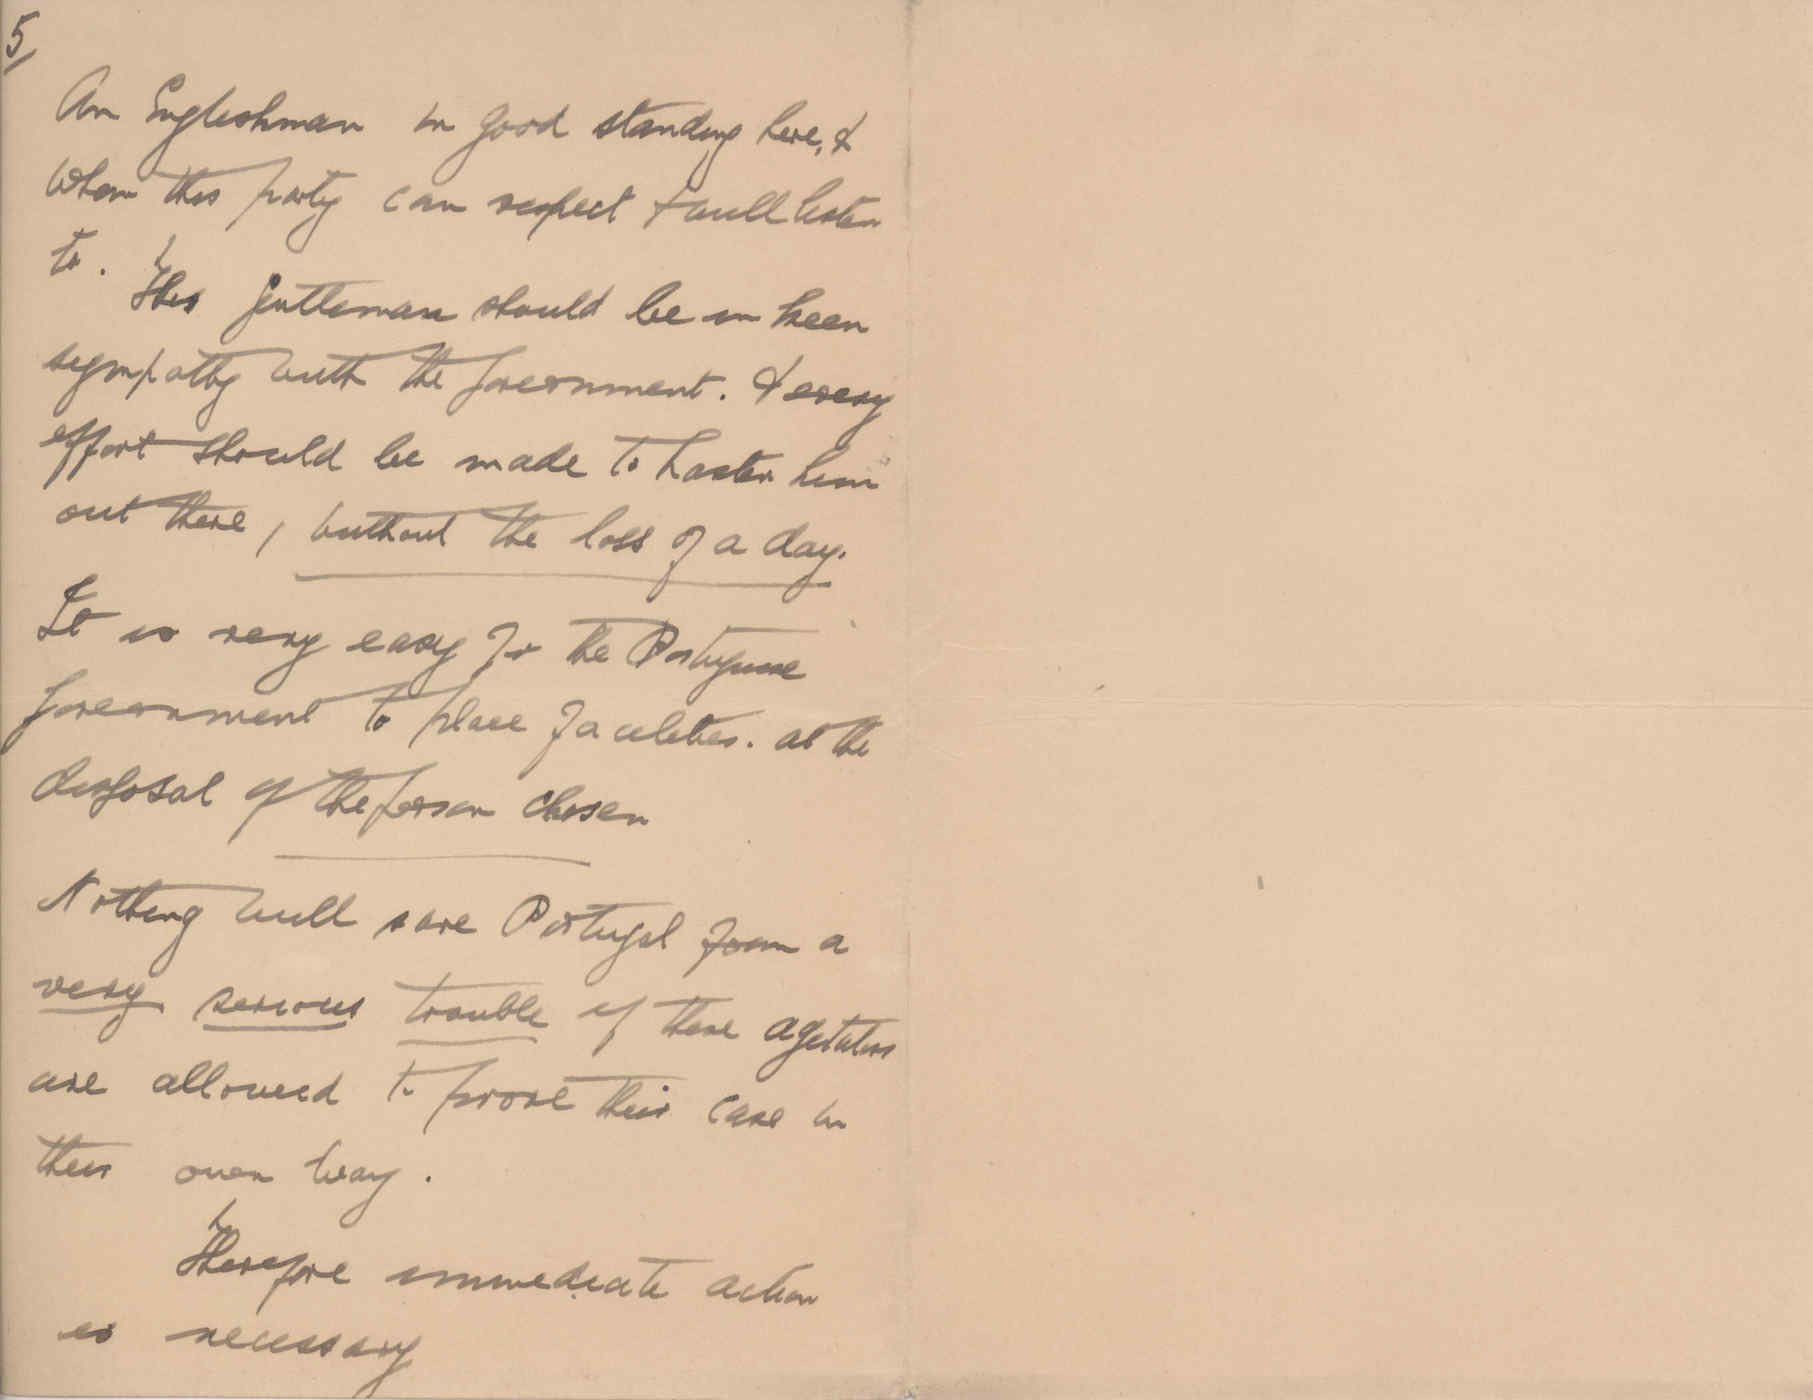 5/
An Englishman in good standing here, &
whom this party can respect & will listen
to.
This gentleman should be in keen
sympathy with the government. & every
effort should be made to hasten him
out there, without the loss of a day.
It is very easy for the Portuguese
government to place facilities. at the
disposal of the person chosen
Nothing will save Portugal from a
very serious trouble if these agitators
are allowed to prove their case in
their own way.
Therefore immediate action
is necessary